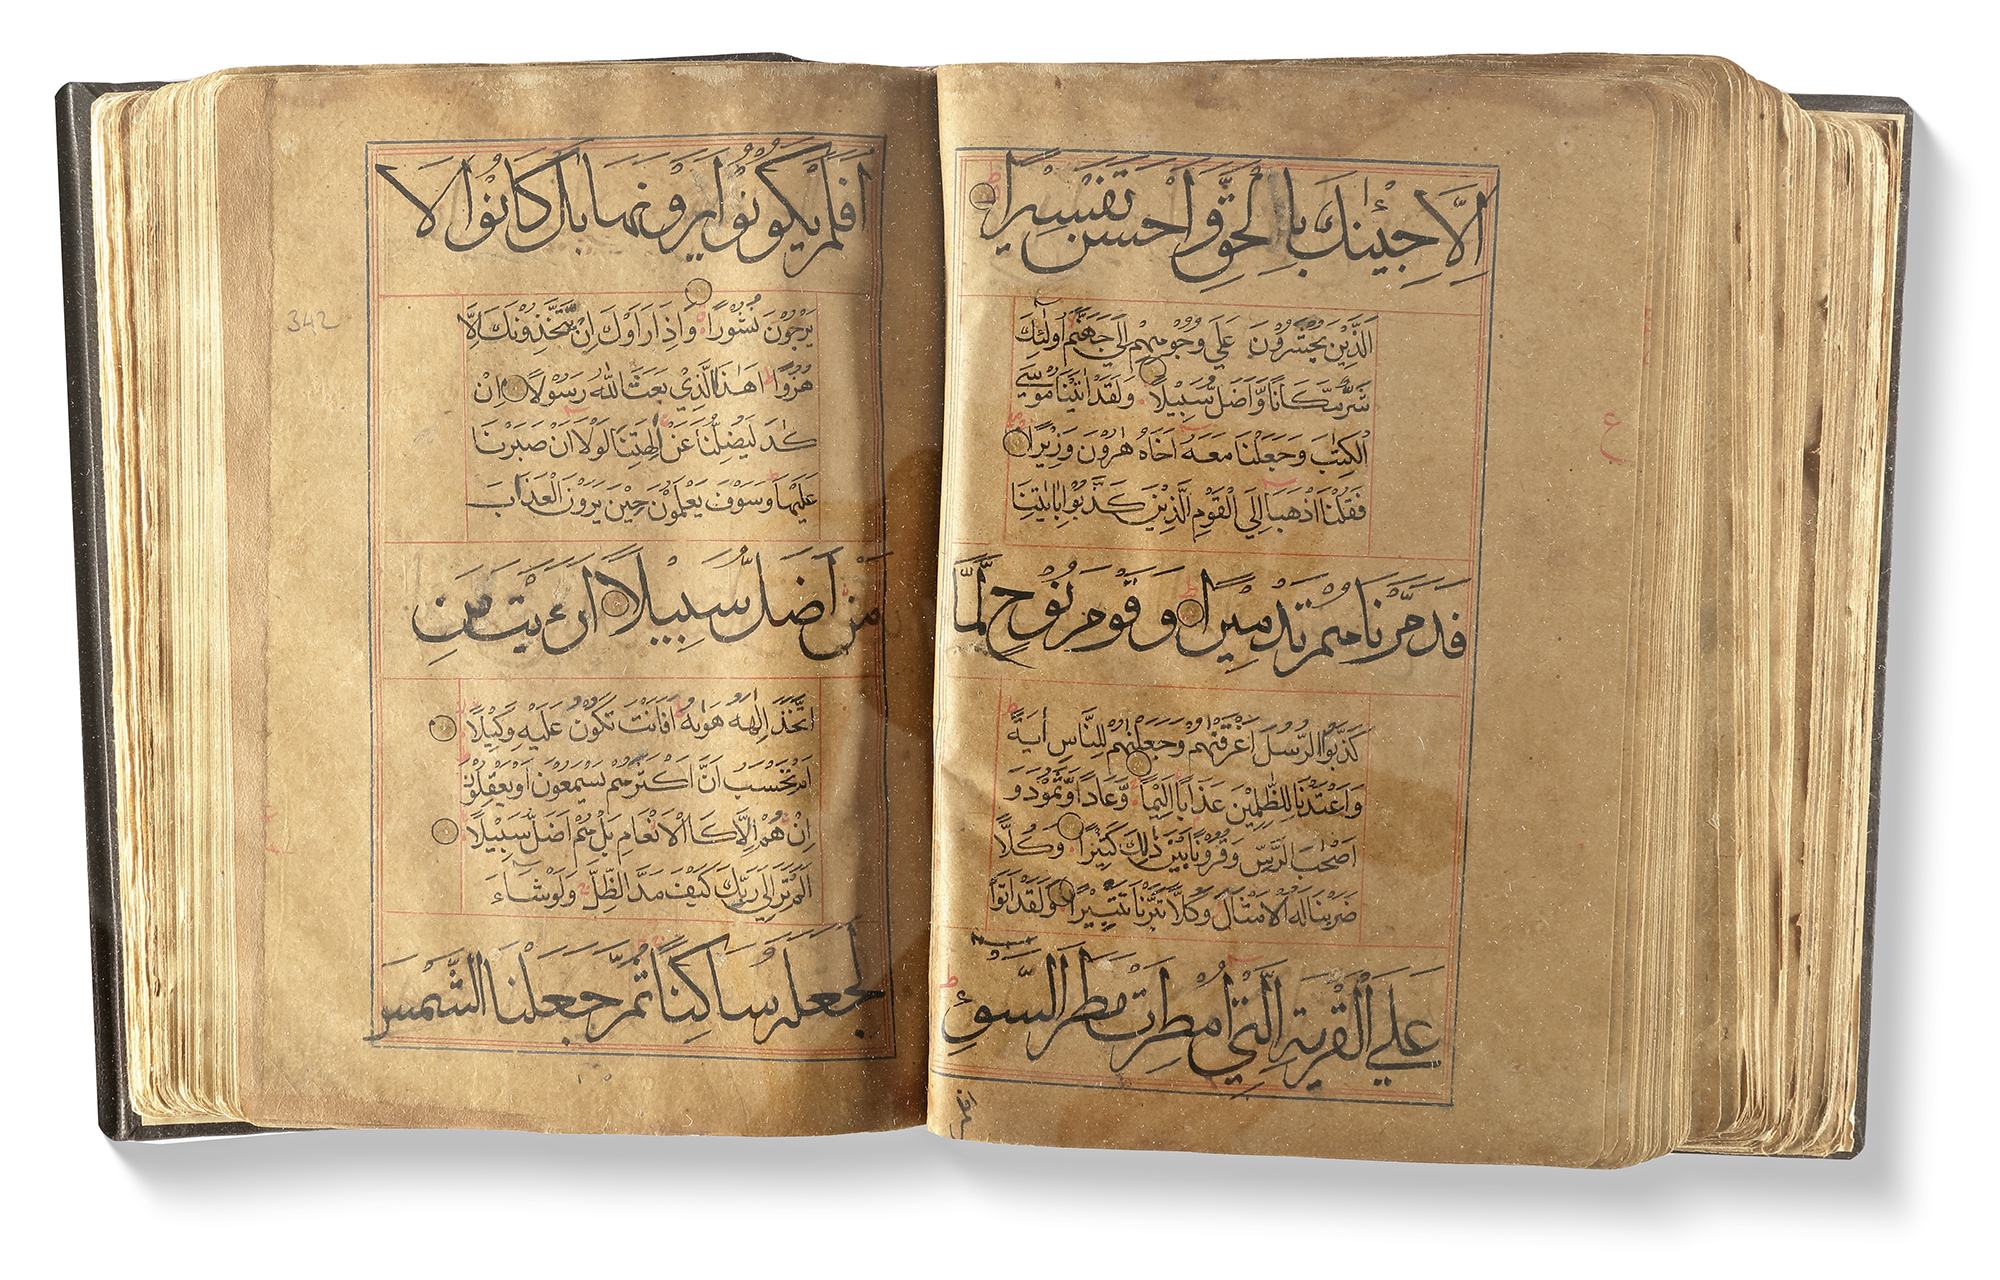 اِلَّا جِئْنٰكَ بِالْحَقِّ وَاَحْسَنَ تَفْسِيْرًا
اَلَّذِيْنَ يُحْشَرُوْنَ عَلٰي وُجُوْهِهِمْ اِلٰي جَهَنَّمَ اُولٰٓئِكَ
شَرٌّ مَّكَانًا وَّاَضَلُّ سَبِيْلًا وَلَقَدْ اٰتَيْنَا مُوْسَي
الْكِتٰبَ وَجَعَلْنَا مَعَهٗٓ اَخَاهُ هٰرُوْنَ وَزِيْرًا
فَقُلْنَا اذْهَبَآ اِلَي الْقَوْمِ الَّذِيْنَ كَذَّبُوْا بِاٰيٰتِنَا
فَدَمَّرْنٰهُمْ تَدْمِيْرًا وَقَوْمَ نُوْحٍ لَّمَّا
كَذَّبُوا الرُّسُلَ اَغْرَقْنٰهُمْ وَجَعَلْنٰهُمْ لِلنَّاسِ اٰيَةً
وَاَعْتَدْنَا لِلظّٰلِمِيْنَ عَذَابًا اَلِيْمًا وَّعَادًا وَّثَمُوْدَ وَ
اَصْحٰبَ الرَّسِّ وَقُرُوْنًا بَيْنَ ذٰلِكَ كَثِيْرًا وَكُلًّا
ضَرَبْنَا لَهُ الْاَمْثَالَ وَكُلًّا تَبَّرْنَا تَتْبِيْرًا وَلَقَدْ اَتَوْا
عَلَي الْقَرْيَةِ الَّتِيْٓ اُمْطِرَتْ مَطَرَ السَّوْءِ
اَفلم
اَفَلَمْ يَكُوْنُوْا يَرَوْنَهَا بَلْ كَانُوْا لَا
يَرْجُوْنَ نُشُوْرًا وَاِذَا رَاَوْكَ اِنْ يَّتَّخِذُوْنَكَ اِلَّا
هُزُوًا اَهٰذَا الَّذِيْ بَعَثَ اللّٰهُ رَسُوْلًا اِنْ
كَادَ لَيُضِلُّنَا عَنْ اٰلِهَتِنَا لَوْلَآ اَنْ صَبَرْنَا
عَلَيْهَا وَسَوْفَ يَعْلَمُوْنَ حِيْنَ يَرَوْنَ الْعَذَابَ
مَنْ اَضَلُّ سَبِيْلًا اَرَءَيْتَ مَنِ
اتَّخَذَ اِلٰهَهٗ هَوٰىهُ اَفَاَنْتَ تَكُوْنُ عَلَيْهِ وَكِيْلًا
اَمْ تَحْسَبُ اَنَّ اَكْثَرَهُمْ يَسْمَعُوْنَ اَوْ يَعْقِلُوْنَ
اِنْ هُمْ اِلَّا كَالْاَنْعَامِ بَلْ هُمْ اَضَلُّ سَبِيْلًا
اَلَمْ تَرَ اِلٰي رَبِّكَ كَيْفَ مَدَّ الظِّلَّ وَلَوْ شَآءَ
لَجَعَلَهٗ سَاكِنًا ثُمَّ جَعَلْنَا الشَّمْسَ
342
ع